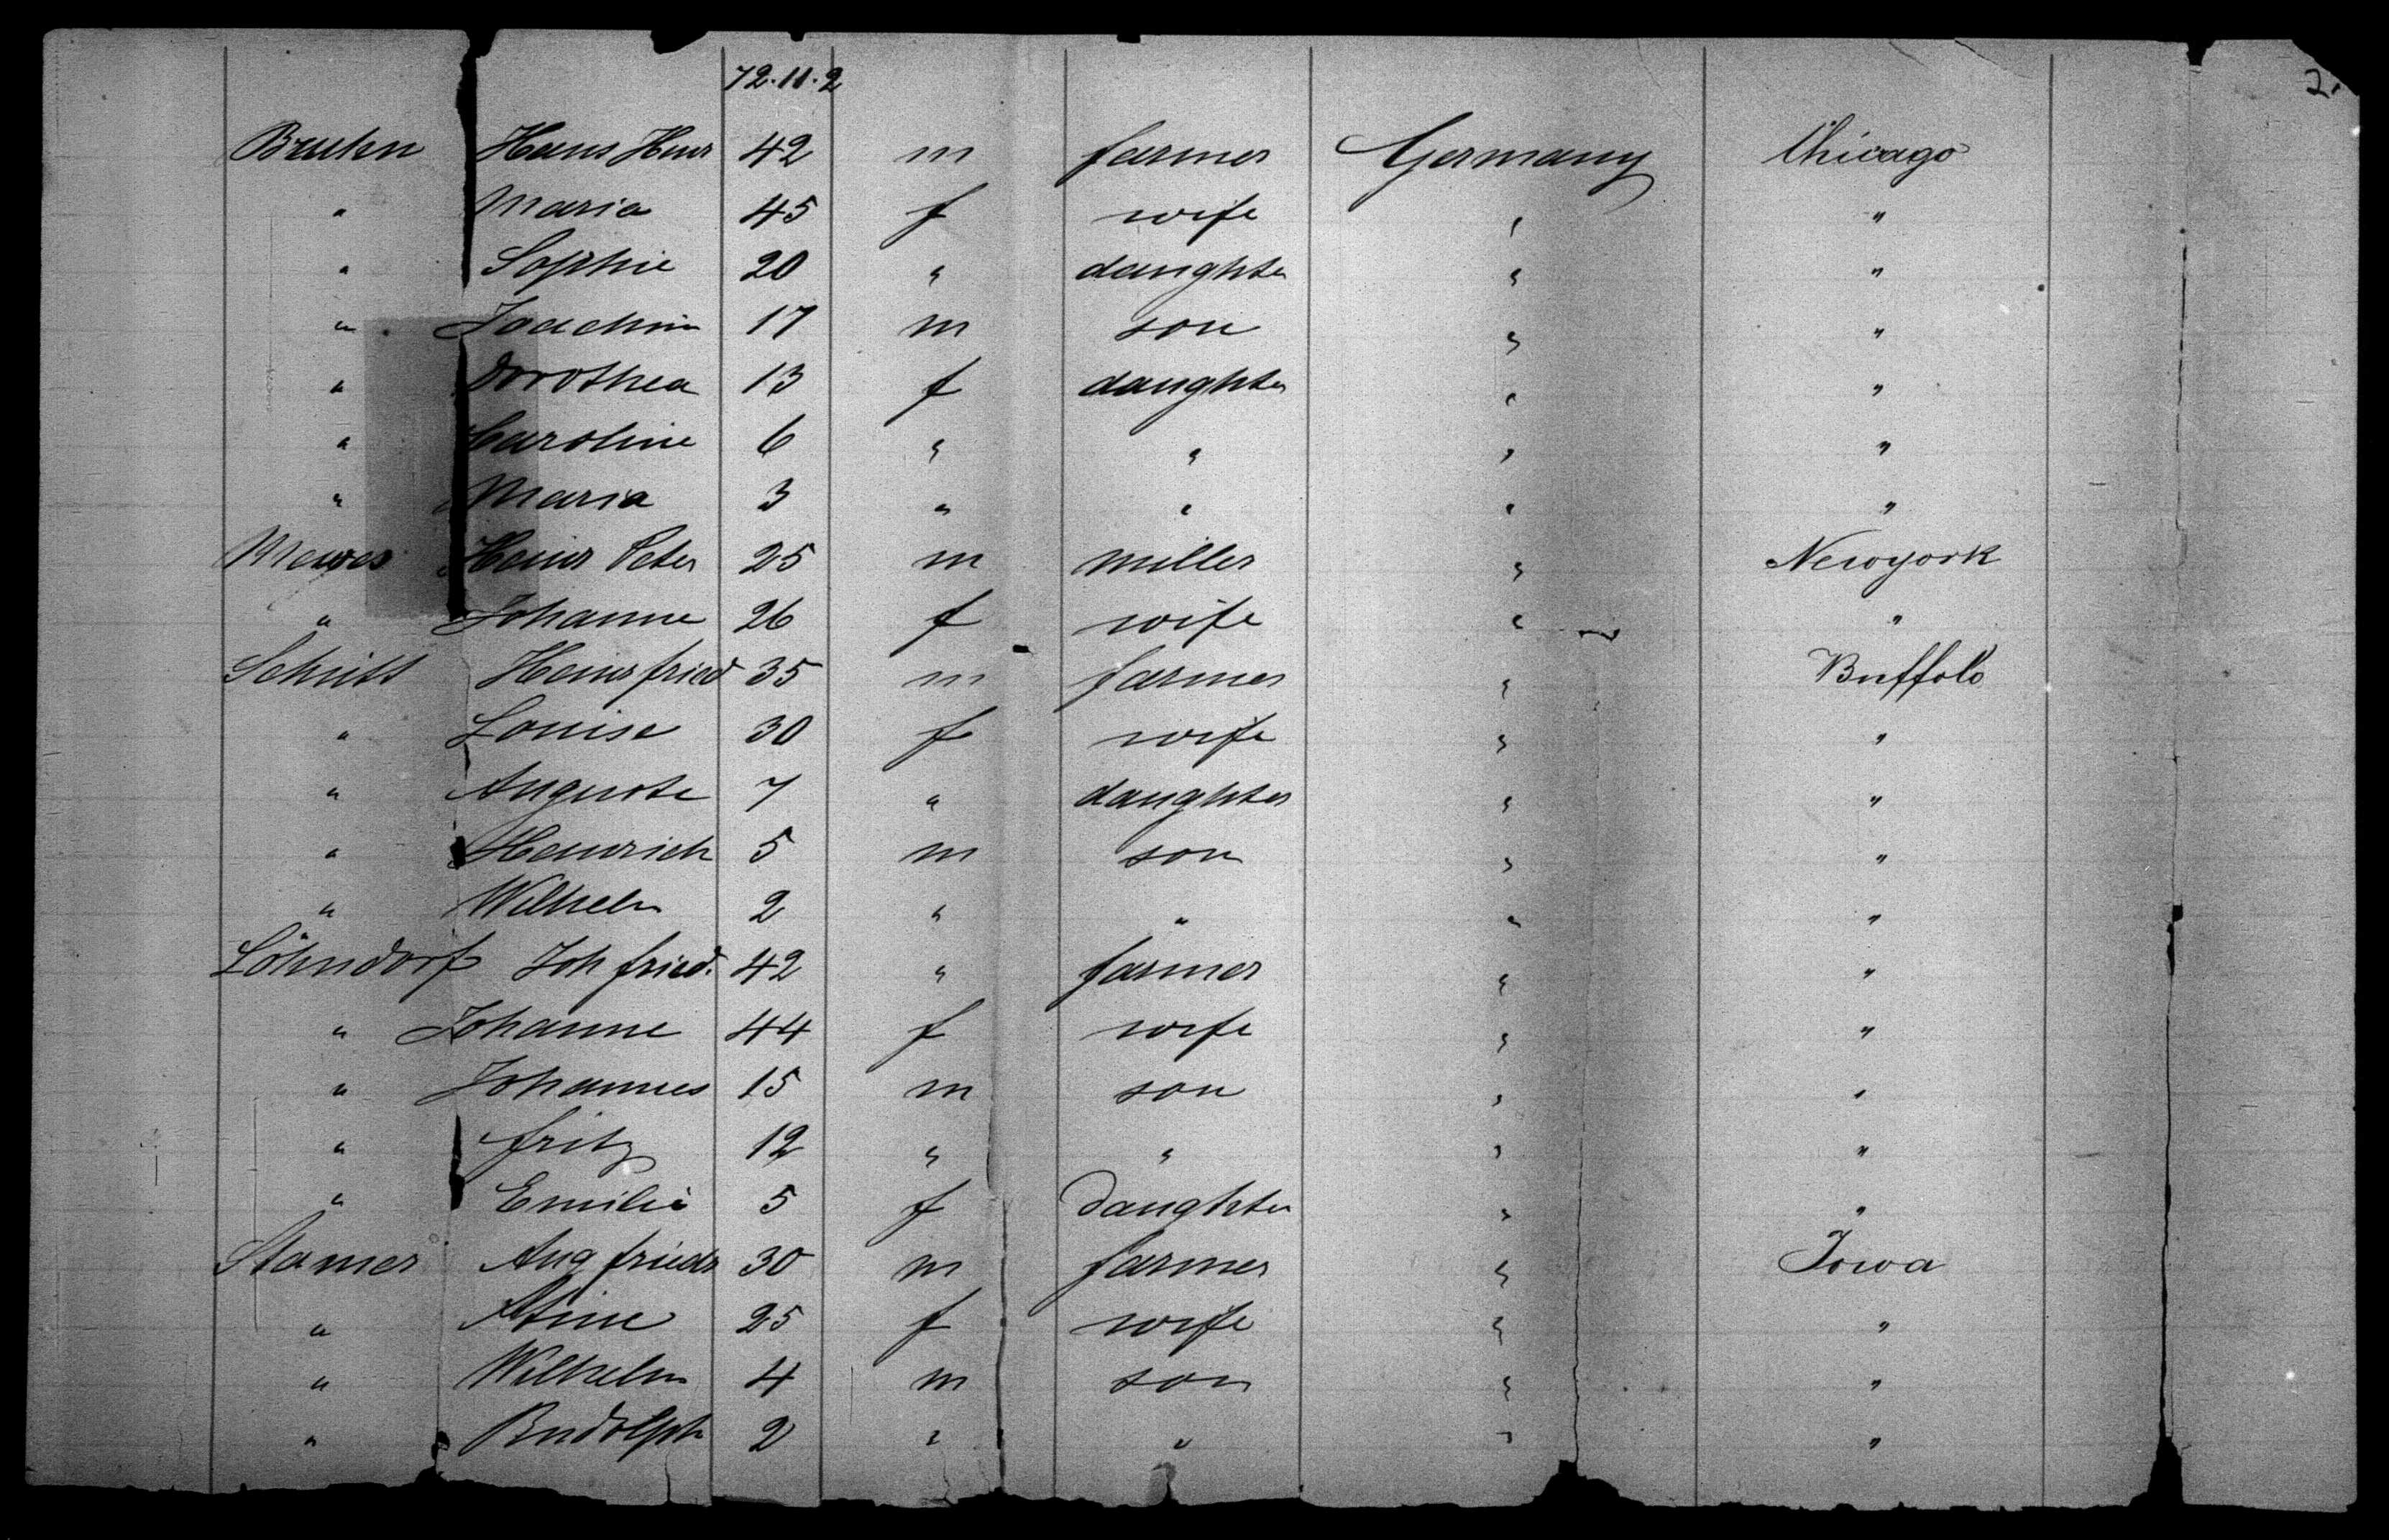 72.11.2
2.
Bruhn Hans Heinr 42 m farmer Germany Chicago
" Maria 45 f wife " "
" Sophie 20 " daughter " "
" Joachim 17 m son " "
" Dorothea 13 f daughter " "
" Caroline 6 " " " "
" Maria 3 " " " "
Mewes Heinr Peter 25 m miller " Newyork
" Johanne 26 f wife " "
Schütt Heinr fried 35 m farmer " Buffolo
" Louise 30 f wife " "
" Auguste 7 " daughter " "
" Heinrich 5 m son " "
" Wilhelm 2 " " " "
Löhndorf Joh fried. 42 " farmer " "
" Johanne 44 f wife " "
" Johannes 15 m son " "
" fritz 12 " " " "
" Emilie 5 f daughter " "
Stamer Aug friedr 30 m farmer " Iowa
" Stine 25 f wife " "
" Wilhelm 4 m son " "
" Rudolph 2 " " " "